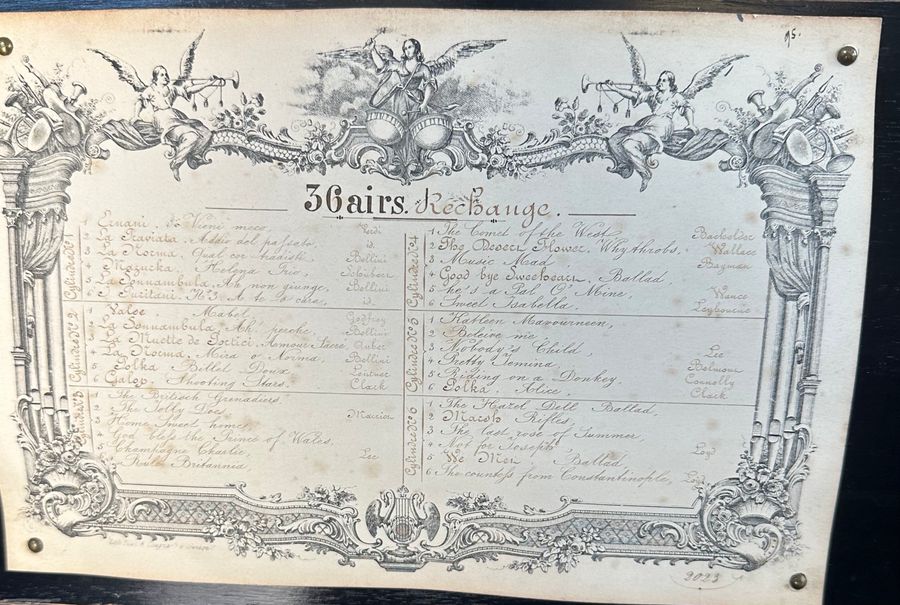 95.
36 airs. Rechange.
Cylindre Nº 1
1 Ernani, Vieni meco Verdi
2 La Traviata, Addio del passato, id.
3 La Norma, Qual cor tradisti Bellini
4 Mazucka, Helena Trio, Schubert
5 La Sonnambula, Ah non giunge, Bellini
6 I Puritani, Nº 3 A te o cara, id.
Cylindre Nº 2
1 Valse, Mabel, Godfrey
2 La Sonnambula, Ah! perche, Bellini
3 La Muette de Portici, Amour Sacré, Auber
4 La Norma, Mira o Norma, Bellini
5 Polka Billet Doux Leutner
6 Galop, Shooting Stars. Clark
Nº 3
1 The British Grenadiers.
2 The Jolly Dogs Marrion
3 Home Sweet home,
4 God bless the Prince of Wales,
5 Champagne Charlie, Lee
6 Rule Britannia
Cylindre Nº 4
1 The Comet of the West Bachelder
2 The Desert Flower, Why throbs, Wallace
3 Music Mad Bayman
4 Good bye Sweetheart, Ballad,
5 he's a Pal O' Mine, Vance
6 Sweet Isabella, Leybourne
Cylindre Nº 5
1 Kathleen Mavourneen,
2 Beleive me
3 Nobody's Child, Lee
4 Pretty Jemina,
5 Riding on a Donkey, Connolly
6 Polka Alice, Clark
Cylindre Nº 6
1 The Hazel Dell Ballad,
2 Marsh Rifles,
3 The last rose of Summer,
4 Not for Joseph, Loyd
5 We Met Ballad,
6 The countess from Constantinople, Loyd
2023